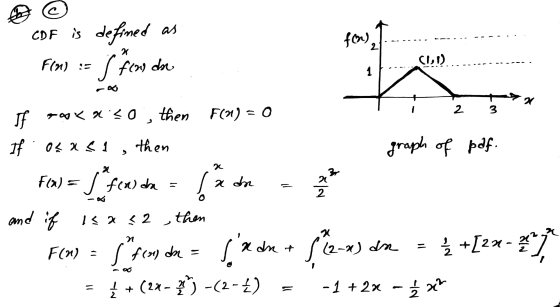 (c)
CDF is defined as
F(x) := ∫_{-∞}^{x} f(x) dx
If -∞ < x ≤ 0, then F(x) = 0
If 0 ≤ x ≤ 1, then
F(x) = ∫_{-∞}^{x} f(x) dx = ∫_{0}^{x} x dx = x²/2
and if 1 ≤ x ≤ 2, then
F(x) = ∫_{-∞}^{x} f(x) dx = ∫_{0}^{1} x dx + ∫_{1}^{x} (2-x) dx = 1/2 + [2x - x²/2]_{1}^{x}
= 1/2 + (2x - x²/2) - (2 - 1/2) = -1 + 2x - 1/2 x²
f(x)
2
1
(1,1)
1 2 3 x
graph of pdf.